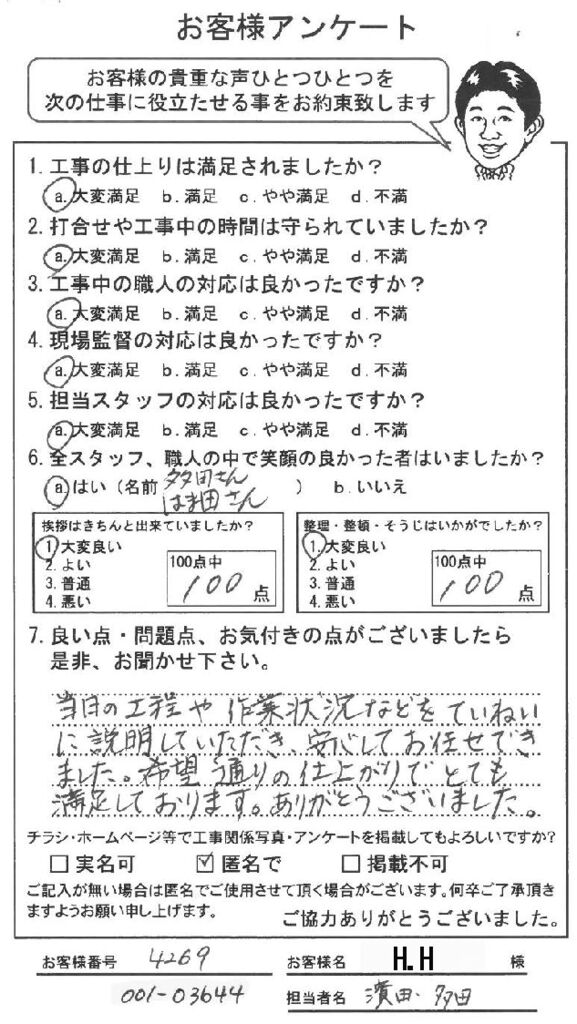 お客様アンケート
お客様の貴重な声ひとつひとつを
次の仕事に役立たせる事をお約束致します
1. 工事の仕上りは満足されましたか？
a. 大変満足 b. 満足 c. やや満足 d. 不満
2. 打合せや工事中の時間は守られていましたか？
a. 大変満足 b. 満足 c. やや満足 d. 不満
3. 工事中の職人の対応は良かったですか？
a. 大変満足 b. 満足 c. やや満足 d. 不満
4. 現場監督の対応は良かったですか？
a. 大変満足 b. 満足 c. やや満足 d. 不満
5. 担当スタッフの対応は良かったですか？
a. 大変満足 b. 満足 c. やや満足 d. 不満
6. 全スタッフ、職人の中で笑顔の良かった者はいましたか？
多田さん
a. はい（名前 はま田さん ） b. いいえ
挨拶はきちんと出来ていましたか？
1. 大変良い
2. よい
3. 普通
4. 悪い
100点中
100 点
整理・整頓・そうじはいかがでしたか？
1. 大変良い
2. よい
3. 普通
4. 悪い
100点中
100 点
7. 良い点・問題点、お気付きの点がございましたら
是非、お聞かせ下さい。
当日の工程や作業状況などをていねい
に説明していただき、安心してお任せでき
ました。希望通りの仕上がりでとても
満足しております。ありがとうございました。
チラシ・ホームページ等で工事関係写真・アンケートを掲載してもよろしいですか？
□ 実名可 ☑ 匿名で □ 掲載不可
ご記入が無い場合は匿名でご使用させて頂く場合がございます。何卒ご了承頂き
ますようお願い申し上げます。
ご協力ありがとうございました。
お客様番号 4269 お客様名 H.H 様
001-03644 担当者名 濱田・多田